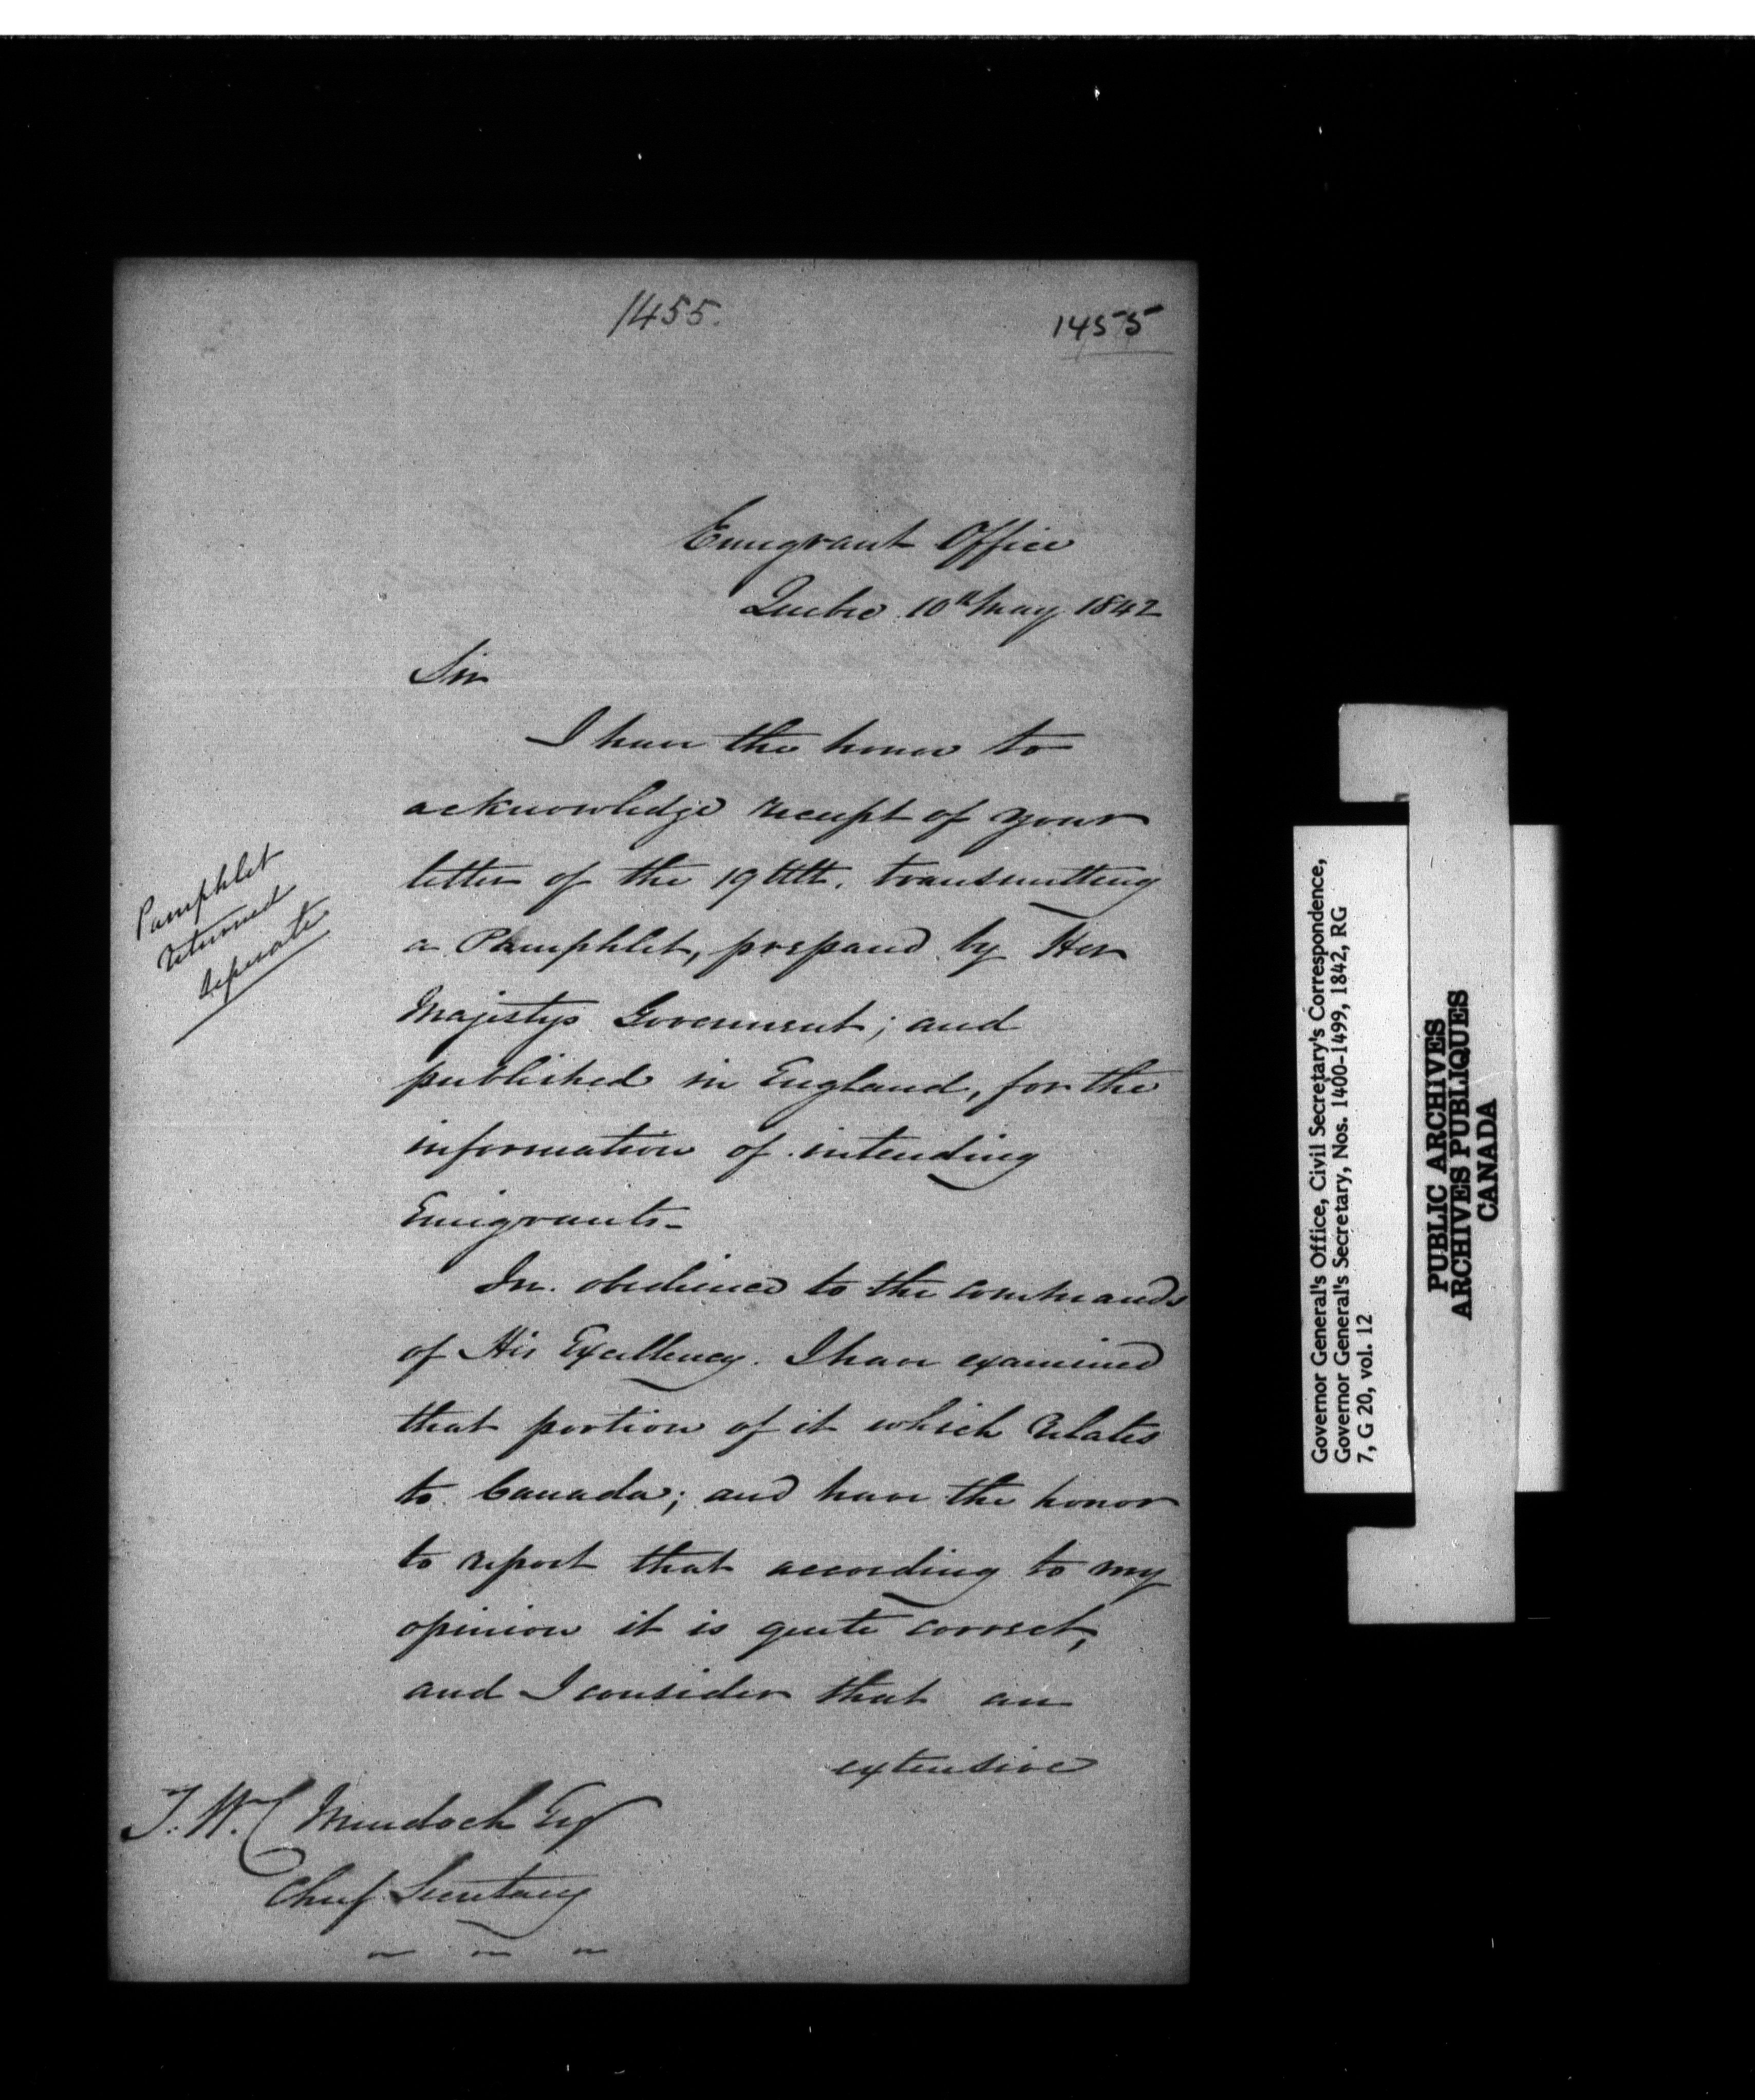 1455.
1455
Emigrant Office
Quebec 10th May 1842
Sir
I have the honor to
acknowledge receipt of your
letter of the 19 Ult. transmitting
a Pamphlet, prepared by Her
Majestys Government; and
published in England, for the
information of intending
Emigrants-
In obedience to the commands
of His Excellency. I have examined
that portion of it which relates
to Canada; and have the honor
to report that according to my
opinion it is quite correct,
and I consider that an
extensive
T. W. C Murdoch Esq
Chief Secretary
Pamphlet
returned
separate
Governor General's Office, Civil Secretary's Correspondence,
Governor General's Secretary, Nos. 1400-1499, 1842, RG
7, G 20, vol. 12
PUBLIC ARCHIVES
ARCHIVES PUBLIQUES
CANADA